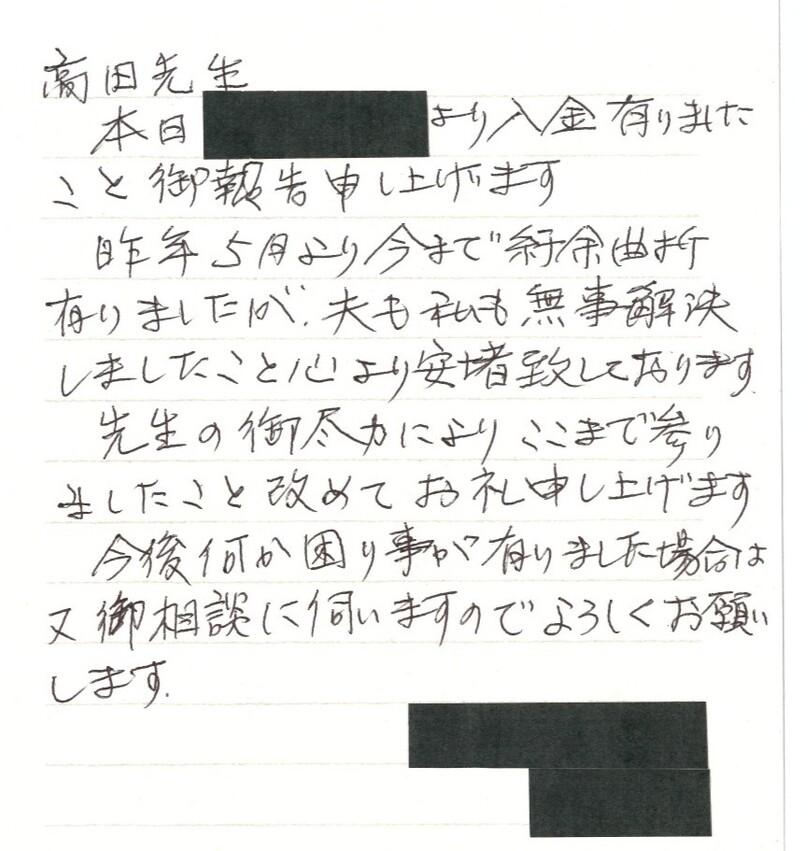 高田先生
本日 より入金有りました
こと御報告申し上げます
昨年5月より今まで紆余曲折
有りましたが、夫も私も無事解決
しましたこと心より安堵致しております。
先生の御尽力によりここまで参り
ましたこと改めてお礼申し上げます
今後何か困り事が有りました場合は
又御相談に伺いますのでよろしくお願い
します。